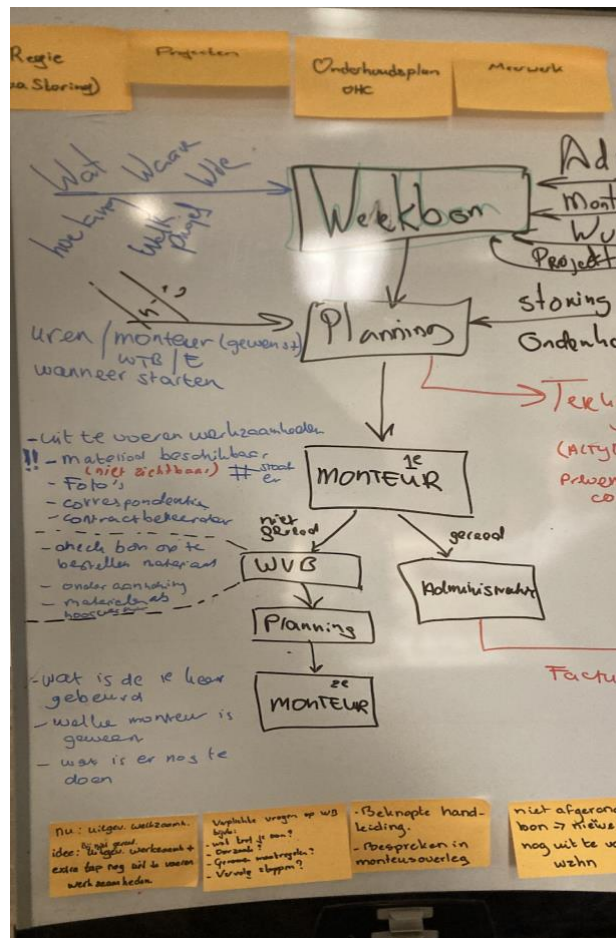 Regie
Storing)
Projecten
Onderhoudsplan
OHC
Meerwerk
Wat Waar Wie
Welk
Weekbon
Ad
Mont
Project
Planning
storing
Onderho
uren/monteur (gewenst)
WTB/E
wanneer starten
- uit te voeren werkzaamheden
!! - materiaal beschikbaar
(niet zichtbaar) # staat er
- Foto's
- correspondentie
- contractbeheerder
1e
MONTEUR
niet gereed
gereed
- check bon op te
bestellen materiaal
- onderaanneming
- materialen
WVB
Administratie
Planning
2e
MONTEUR
- wat is de 1e keer
gebeurd
- welke monteur is
geweest
- wat is er nog te
doen
Factu
nu: uitgev. werkzaamh.
idee: uitgev. werkzaamh +
extra tap nog uit te voeren
werkzaamheden
Verplichte vragen op WB
- wat trof je aan?
- Oorzaak?
- Genomen maatregelen?
- Vervolg stappen?
- Beknopte hand-
leiding.
- Bespreken in
monteursoverleg
niet afgeron
bon => nieuwe
nog uit te vo
wzhn